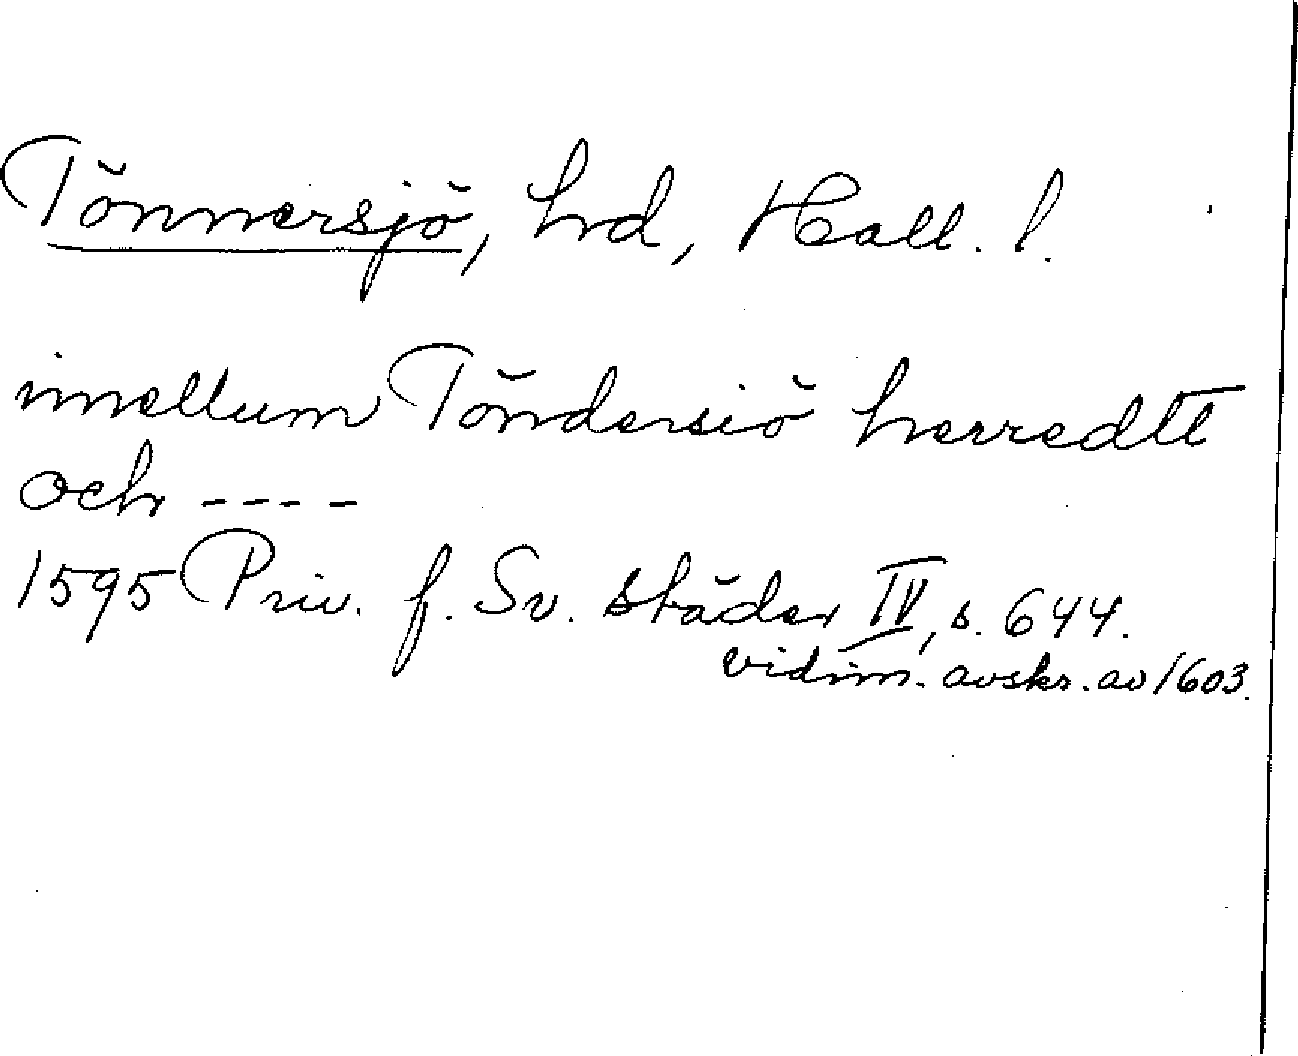 Tönnersjö, hd, Hall. l.
imellum Töndersiö herredtt
och ----
1595 Priv. f. Sv. städer IV, s. 644.
vidim. avskr. av 1603.